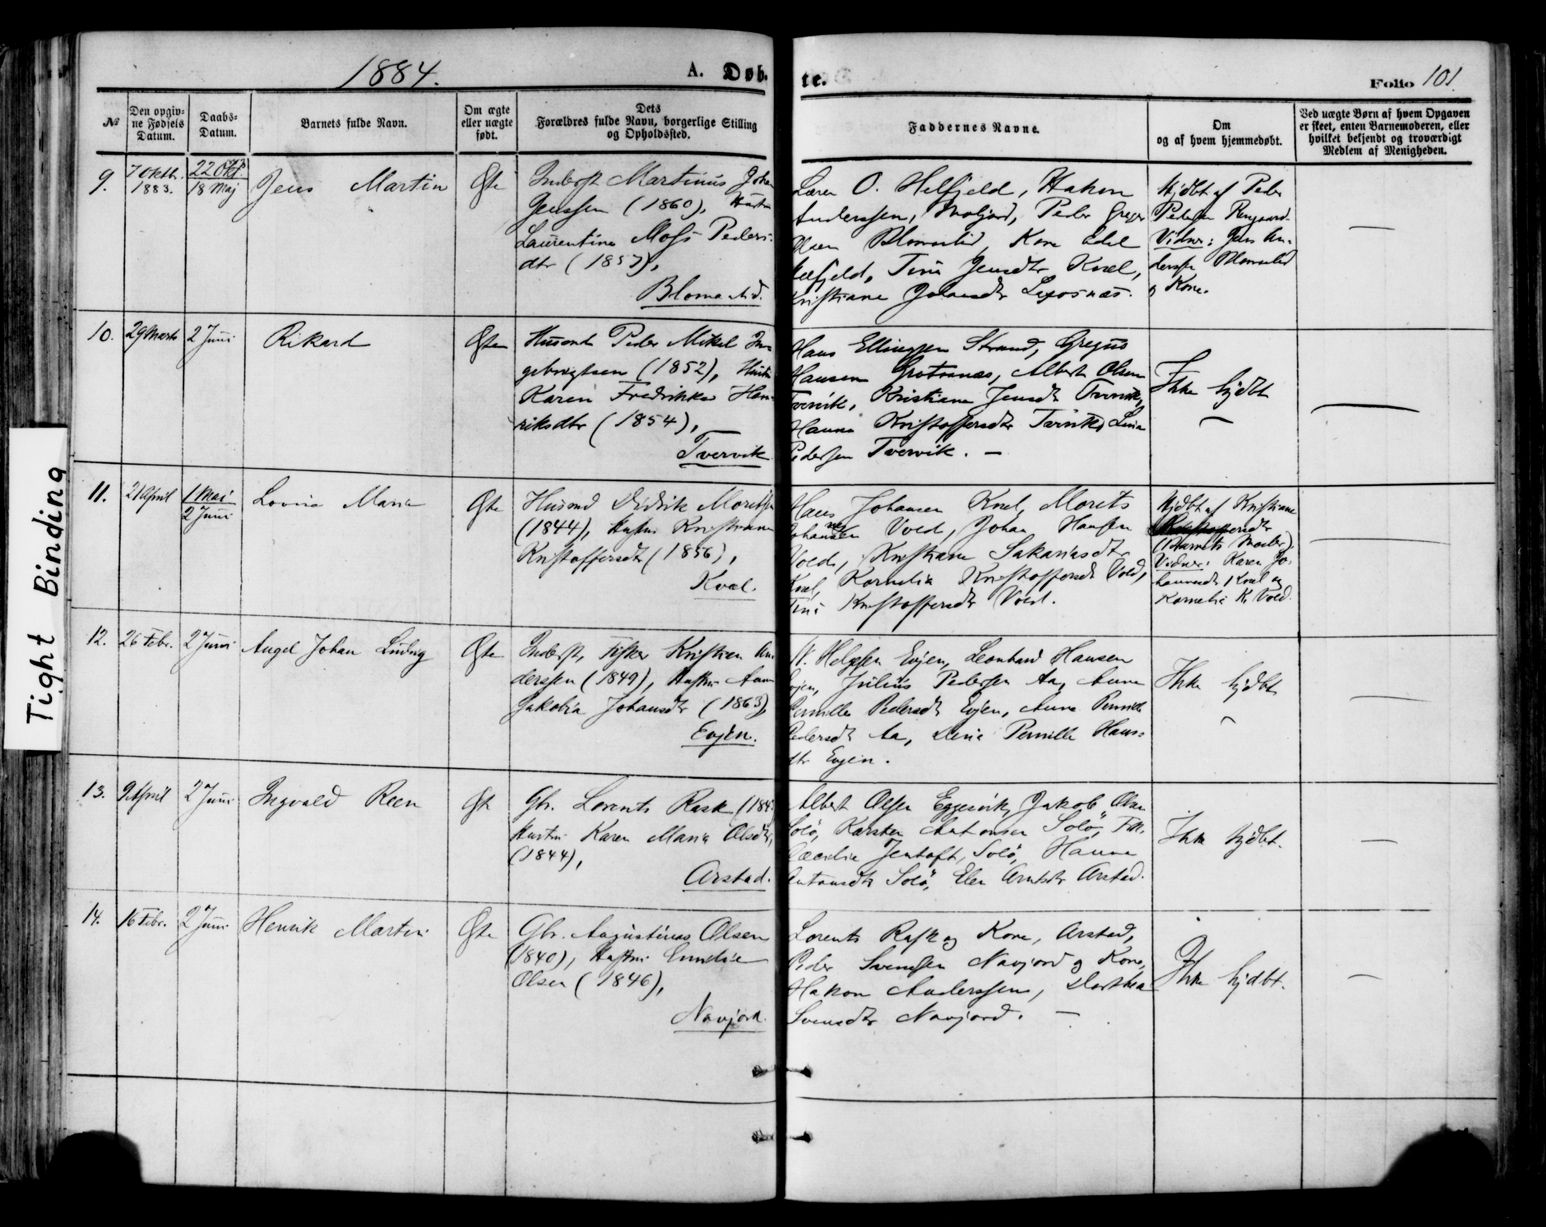 1884.
A. Døb-
te.
Folio 101.
№
Den opgiv-
ne Fødsels
Datum.
Daabs-
Datum.
Barnets fulde Navn.
Om ægte
eller uægte
født.
Dets
Forældres fulde Navn, borgerlige Stilling
og Opholdssted.
Faddernes Navne.
Om
og af hvem hjemmedøbt.
Ved uægte Børn af hvem Opgaven
er skeet, enten Barnemoderen, eller
hvilket bekjendt og troværdigt
Medlem af Menigheden.
9.
7 Oktb.
1883.
22 Okt.
18 Maj
Jens Martin
Ægte
Inderst Martinus Johan
Jenssen (1860), Hustru
Laurentina Moss Peders-
dtr (1857),
Blomarlid.
Lærer O. Helfjeld, Hakon
Anderssen, Peder Greger
Olsen Blomarlid, Kone Edel
Tina Jensdtr Kval,
Kristiane Johansdtr
Hjdbt af Peder
Pedersen
Vidner: Jens An-
derssen Blomarlid
og Kone.
—
10.
29 Marts
2 Juni
Rikard
Ægte
Husmd Peder Mikal In-
gebrigtsen (1852), Hustru
Karen Fredrikke Hen-
riksdtr (1854),
Tvervik
Hans Ellingsen Strand, Gregus
Hansen Grotranæs, Albert Olsen
Tvervik, Kristiane Jensdtr Tvervik,
Hanna Kristoffersdtr Tvervik, Lina
Pedersen Tvervik. —
Ikke hjdbt
—
11.
21 April
1 Mai
2 Juni
Lovisa Maria
Ægte
Husmd Didrik Moritsen
(1844), Hustru Kristiane
Kristoffersdtr (1856),
Kval.
Hans Johansen Kval, Morits
Johansen Vold, Johan Hansen
Vold, Kristiane Sakariasdtr
Kval, Kornelia Kristoffersdtr Vold,
Tina Kristoffersdtr Vold.
Hjdbt af Kristiane
Kristoffersdtr
(Barnets Moder).
Vidner: Karen Jo-
hannesdtr Kval og
Kornelia Kr. Vold.
—
12.
26 Febr.
2 Juni
Angel Johan Ludvig
Ægte
Inderst, Fisker Kristian An-
derssen (1849), Hustru Anne
Jakobia Johansdtr (1863),
Evjen.
N. Helgesen Evjen, Leonhard Hansen
Evjen, Julius Pedersen Aa, Anne
Pernille Pedersdtr Evjen, Anne Pernille
Pedersdtr Aa, Pernille Hans-
dtr Evjen.
Ikke hjdbt
—
13.
9 April
2 Juni
Ingvald Reen
Ægte
Gbr. Lorents Rask (184
Hustru Karen Maria Olsdtr,
(1844),
Arstad.
Albert Olsen Eggesvik, Jakob Olsen
Solø, Karsten Antonsen Solø, Frk.
Cæcilie Jentoft, Solø, Hanna
Antonsdtr Solø, Elen Arntsdtr Arstad.
Ikke hjdbt.
—
14.
16 Febr.
2 Juni
Henrik Martin
Ægte
Gbr. Augustinus Olsen
(1840), Hustru Emelie
Olsen (1846),
Navjord.
Lorents Rask og Kone, Arstad,
Peder Svendsen Navjord og Kone,
Hakon Anderssen, Dorthea
Svensdtr Navjord. —
Ikke hjdbt.
—
Tight Binding